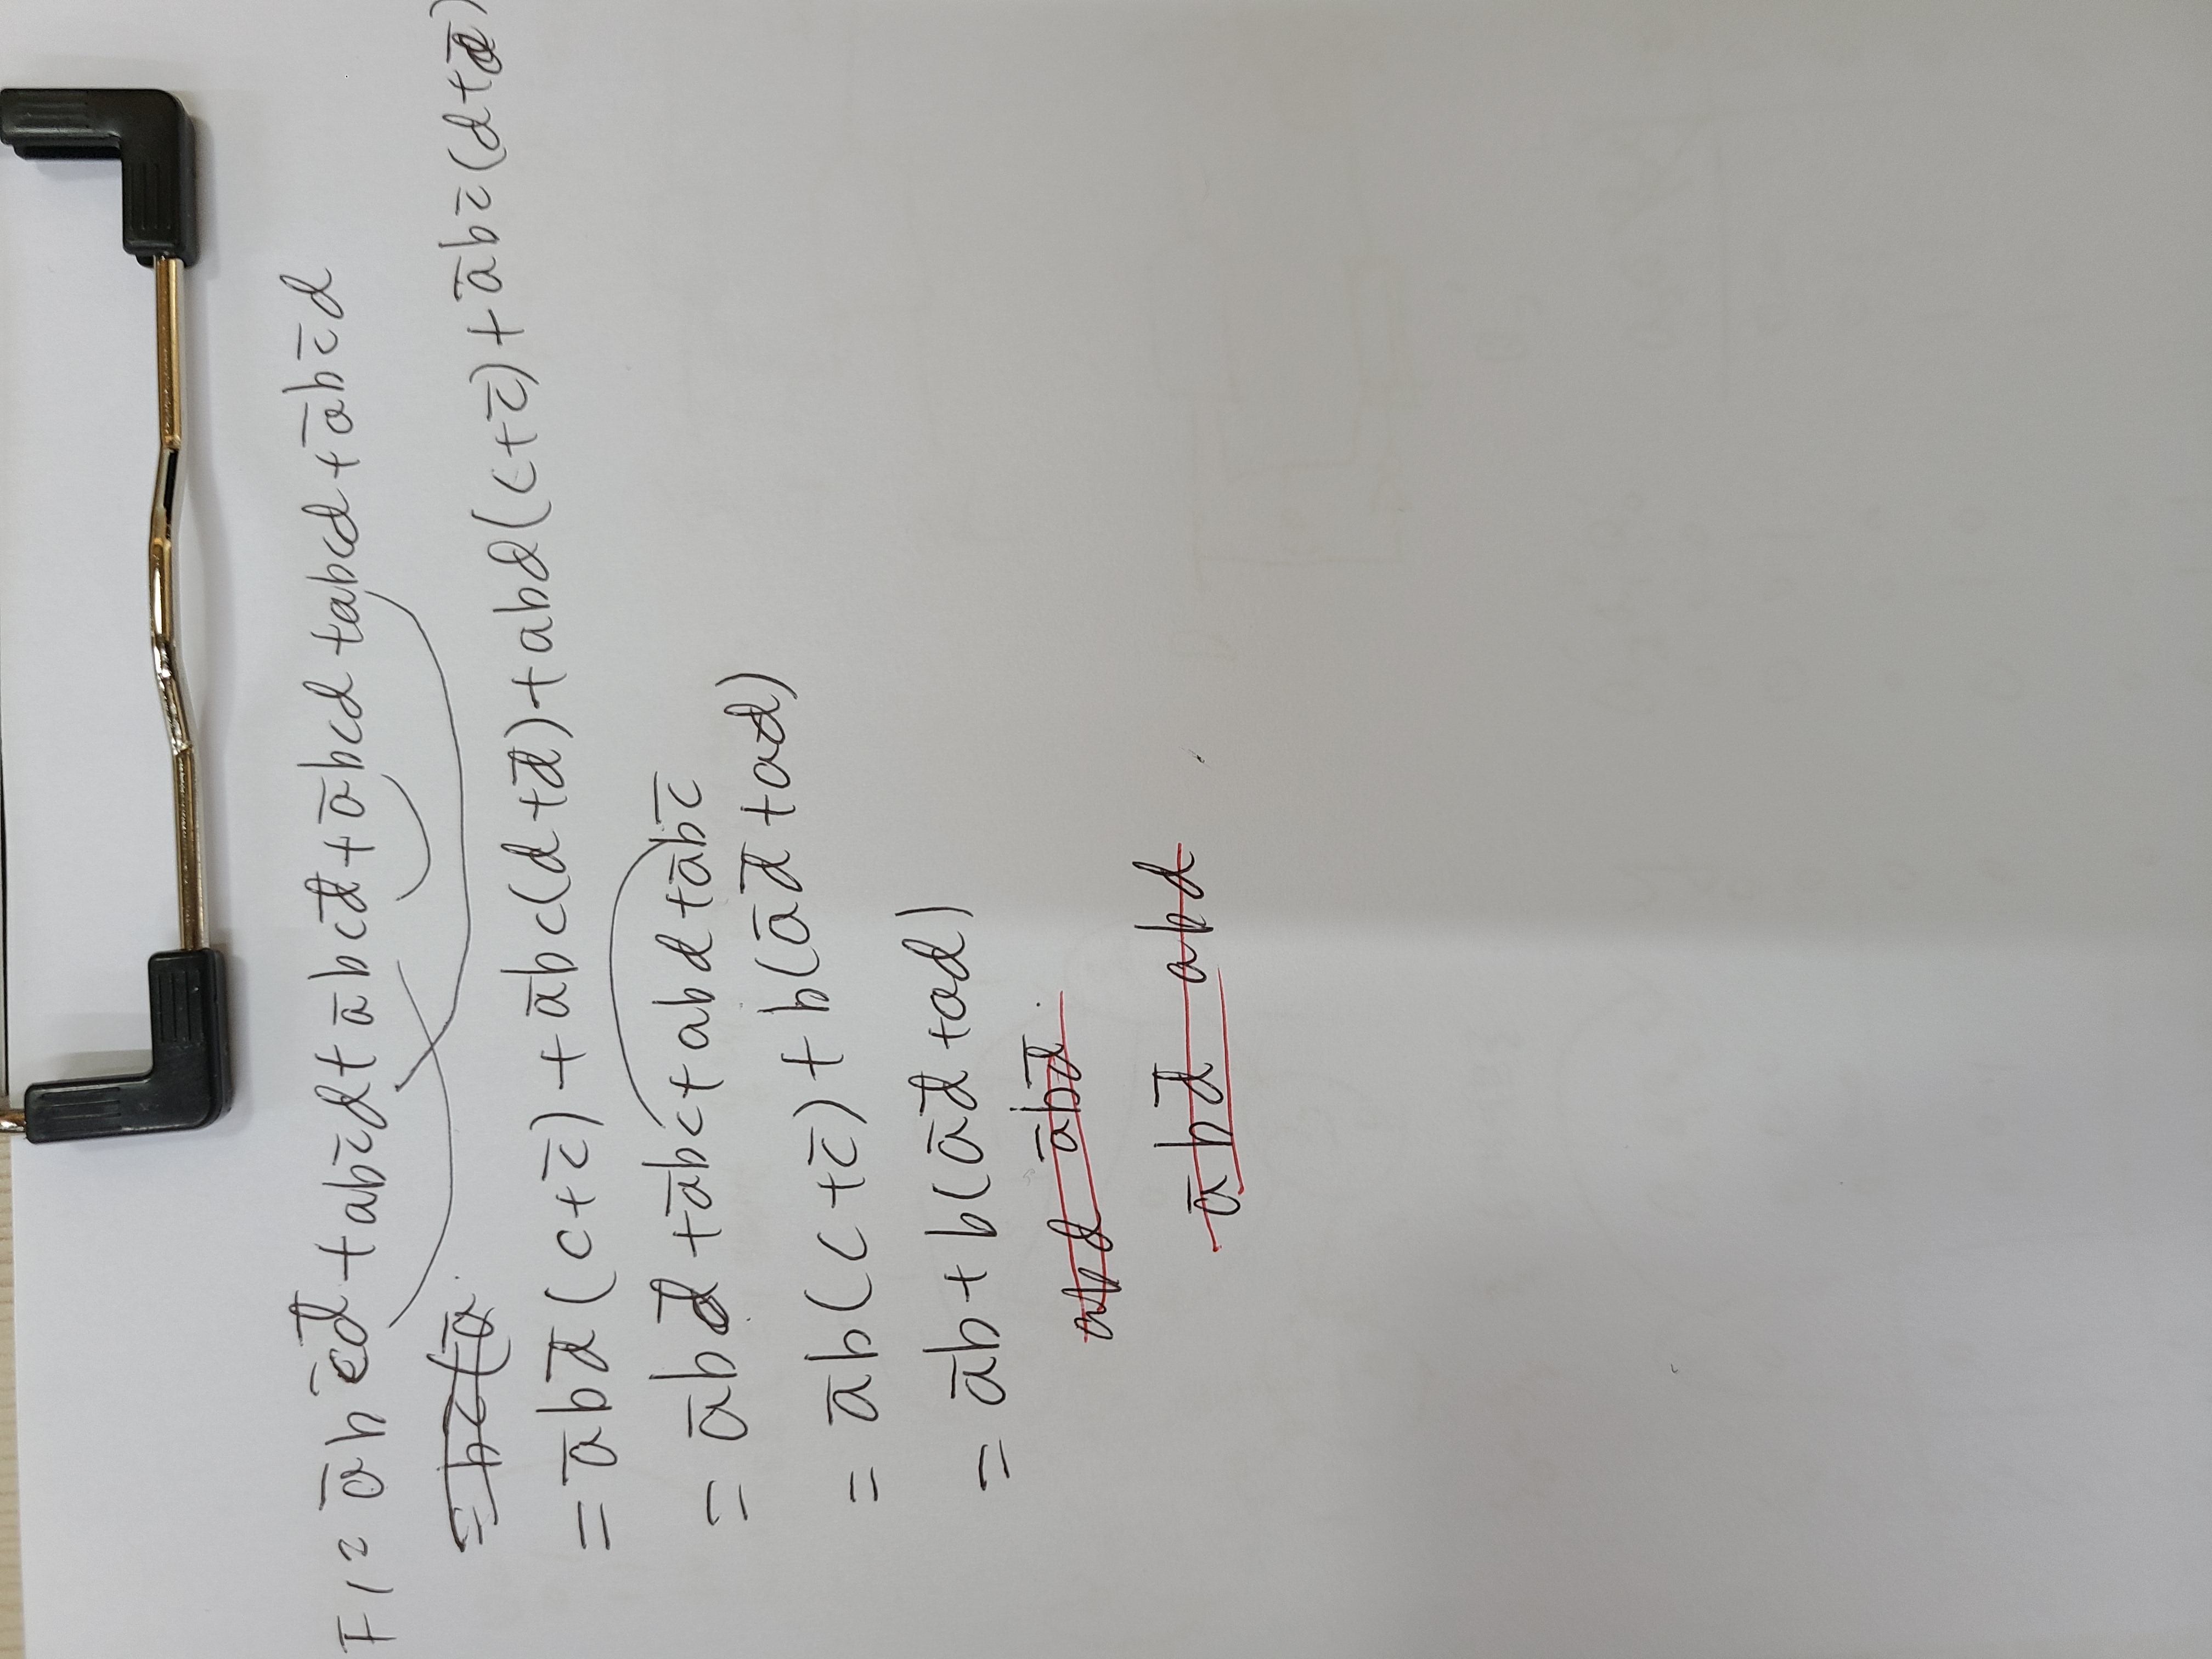 F1= a̅bc̅d̅ + abc̅d + a̅bcd̅ + a̅bcd + abcd + a̅bc̅d
= bc(a̅
= a̅bd̅(c+c̅) + a̅bc(d+d̅) + abd(c+c̅) + a̅bc̅(d+d̅)
= a̅bd̅ + a̅bc + abd + a̅bc̅
= a̅b(c+c̅) + b(a̅d̅ + ad)
= a̅b + b(a̅d̅ + ad)
abd a̅bd̅
a̅bd̅ abd